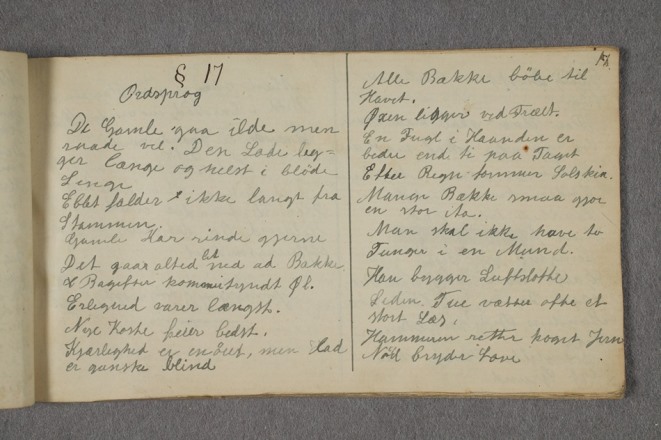 § 17
Ordsprog
De Gamle gaa ilde men
raade vel. Den Lade leg=
ger længe og helst i bløde
Senge
Eblet falder ikke langt fra
Stammen
Gamle Kar rinde gjerne
Det gaar altid let ned ad Bakke
Bagefter kommer tyndt Øl.
Erlighed varer længst.
Nye Koste feier bedst.
Kjærlighed er enøiet, men Had
er ganske blind
Alle Bække løbe til
Havet.
Øxen ligger ved Træet.
En Fugl i Haanden er
bedre end ti paa Taget
Efter Regn kommer Solskin.
Mange Bække smaa gjør
en stor Aa.
Man skal ikke have to
Tunger i en Mund.
Han bygger Luftslotte
Liden Tue vælter ofte et
stort Læs.
Hammeren retter kroget Jern
Nød bryder Love